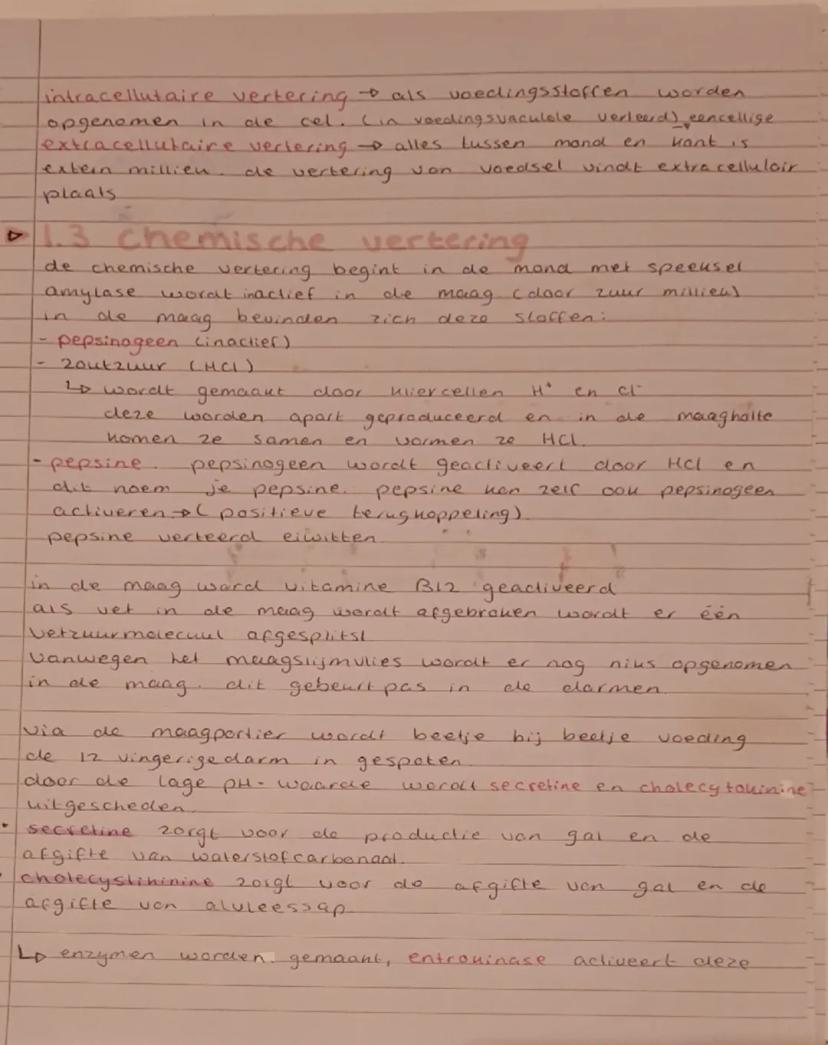 intracellulaire vertering → als voedingsstoffen worden
opgenomen in de cel. (in voedingsvaculole verteerd) eencellige
extracellulaire vertering → alles tussen mond en kont is
extern millieu. de vertering van voedsel vindt extracellulair
plaats
▷ 1.3 chemische vertering
de chemische vertering begint in de mond met speeksel
amylase wordt inactief in de maag (door zuur millieu)
in de maag bevinden zich deze stoffen:
- pepsinogeen (inactief)
- zoutzuur (HCl)
↳ wordt gemaakt door kliercellen H⁺ en Cl⁻
deze worden apart geproduceerd en in de maagholte
komen ze samen en vormen ze HCl.
- pepsine. pepsinogeen wordt geactiveert door HCl en
dit noem je pepsine. pepsine kan zelf ook pepsinogeen
activeren → (positieve terugkoppeling)
pepsine verteerd eiwitten
in de maag word vitamine B12 geactiveerd
als vet in de maag wordt afgebroken wordt er één
vetzuurmolecuul afgesplitst
vanwegen het maagslijmvlies wordt er nog niks opgenomen
in de maag. dit gebeurt pas in de darmen.
via de maagportier wordt beetje bij beetje voeding
de 12 vingerigedarm in gespoten.
door de lage pH-waarde wordt secretine en cholecytokinine
uitgescheden.
• secretine zorgt voor de productie van gal en de
afgifte van waterstofcarbonaat.
• cholecystikinine zorgt voor de afgifte van gal en de
afgifte van alvleessap
↳ enzymen worden gemaakt, entrokinase activeert deze